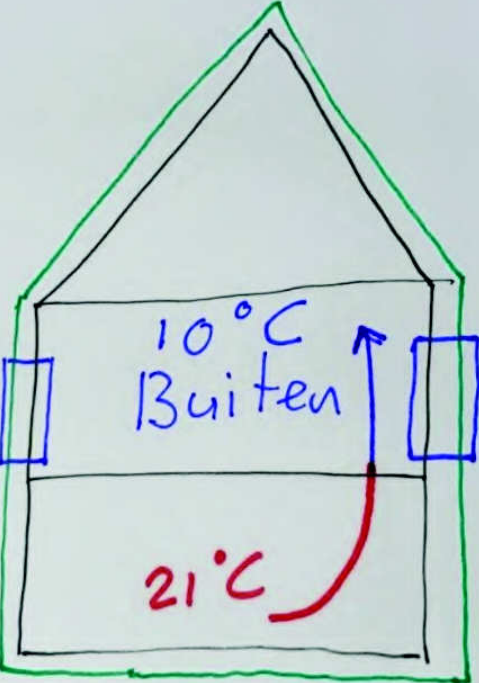 10°C
Buiten
21°C